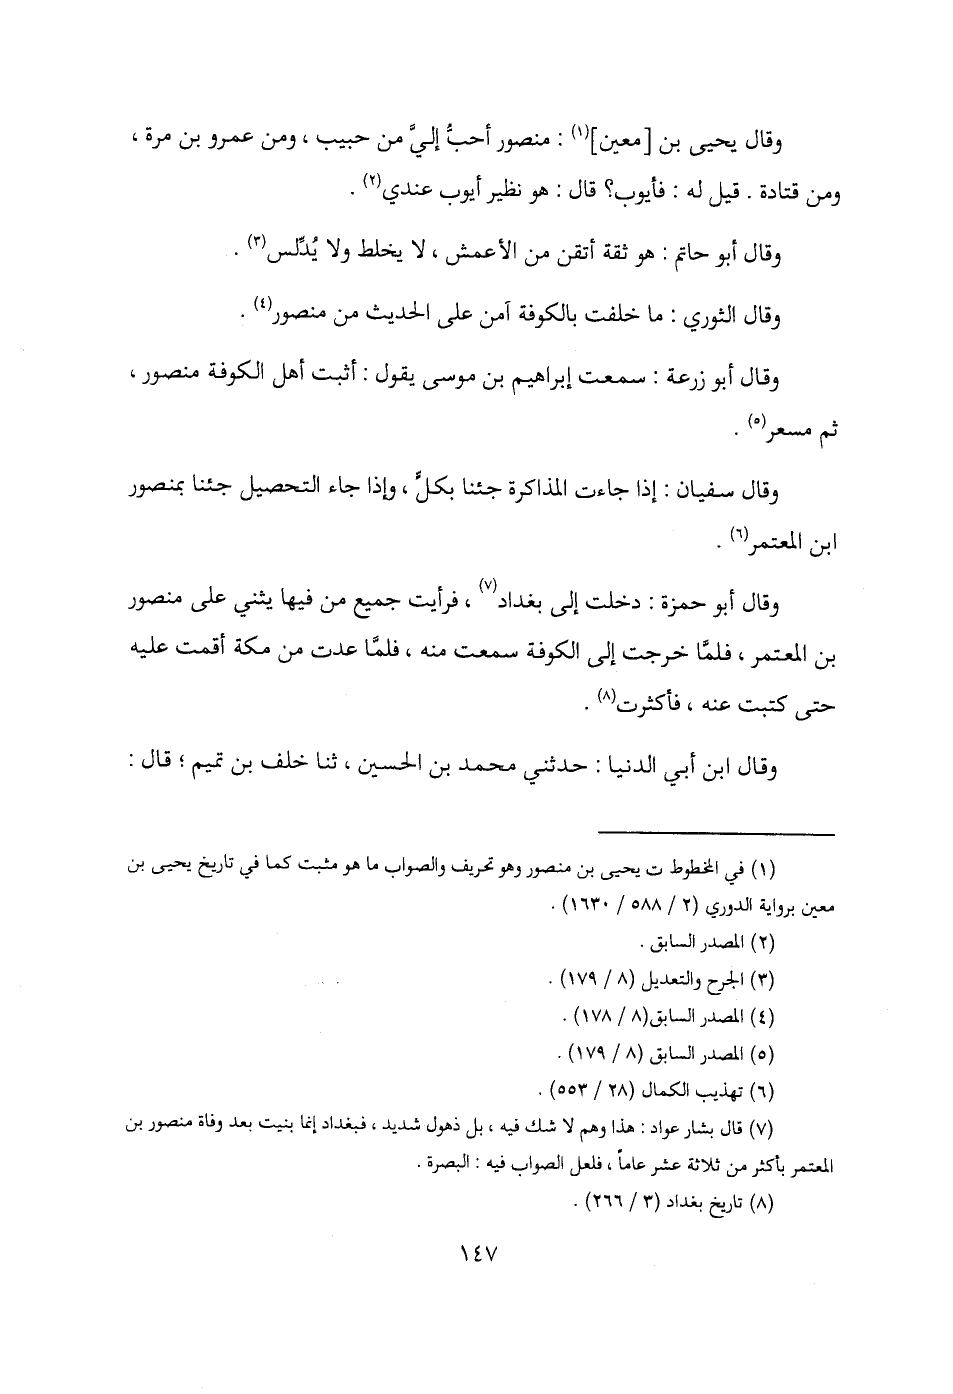 وقال يحيى بن [معين](١) : منصور أحبُّ إليَّ من حبيب ، ومن عمرو بن مرة ،
ومن قتادة . قيل له : فأيوب؟ قال : هو نظير أيوب عندي(٢) .
وقال أبو حاتم : هو ثقة أتقن من الأعمش ، لا يخلط ولا يُدلِّس(٣) .
وقال الثوري : ما خلفت بالكوفة آمن على الحديث من منصور(٤) .
وقال أبو زرعة : سمعت إبراهيم بن موسى يقول : أثبت أهل الكوفة منصور ،
ثم مسعر(٥) .
وقال سفيان : إذا جاءت المذاكرة جئنا بكلٍّ ، وإذا جاء التحصيل جئنا بمنصور
ابن المعتمر(٦) .
وقال أبو حمزة : دخلت إلى بغداد(٧) ، فرأيت جميع من فيها يثني على منصور
بن المعتمر ، فلمَّا خرجت إلى الكوفة سمعت منه ، فلمَّا عدت من مكة أقمت عليه
حتى كتبت عنه ، فأكثرت(٨) .
وقال ابن أبي الدنيا : حدثني محمد بن الحسين ، ثنا خلف بن تميم ؛ قال :
(١) في المخطوط ت يحيى بن منصور وهو تحريف والصواب ما هو مثبت كما في تاريخ يحيى بن
معين برواية الدوري (٢ / ٥٨٨ / ١٦٣٠) .
(٢) المصدر السابق .
(٣) الجرح والتعديل (٨ / ١٧٩) .
(٤) المصدر السابق(٨ / ١٧٨) .
(٥) المصدر السابق (٨ / ١٧٩) .
(٦) تهذيب الكمال (٢٨ / ٥٥٣) .
(٧) قال بشار عواد : هذا وهم لا شك فيه ، بل ذهول شديد ، فبغداد إنما بنيت بعد وفاة منصور بن
المعتمر بأكثر من ثلاثة عشر عاماً ، فلعل الصواب فيه : البصرة .
(٨) تاريخ بغداد (٣ / ٢٦٦) .
١٤٧